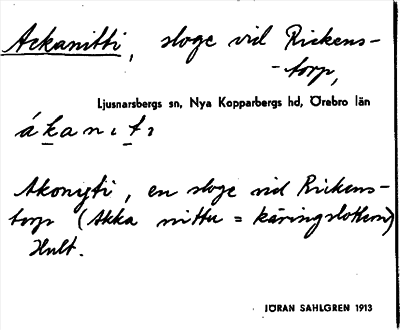 Ackanitti, sloge vid Rickens-
-torp,
Ljusnarsbergs sn, Nya Kopparbergs hd, Örebro län
ákanıtı
Akonyti, en sloge vid Rickens-
torp (Akka nittu = käringslotten)
Hult.
JÖRAN SAHLGREN 1913